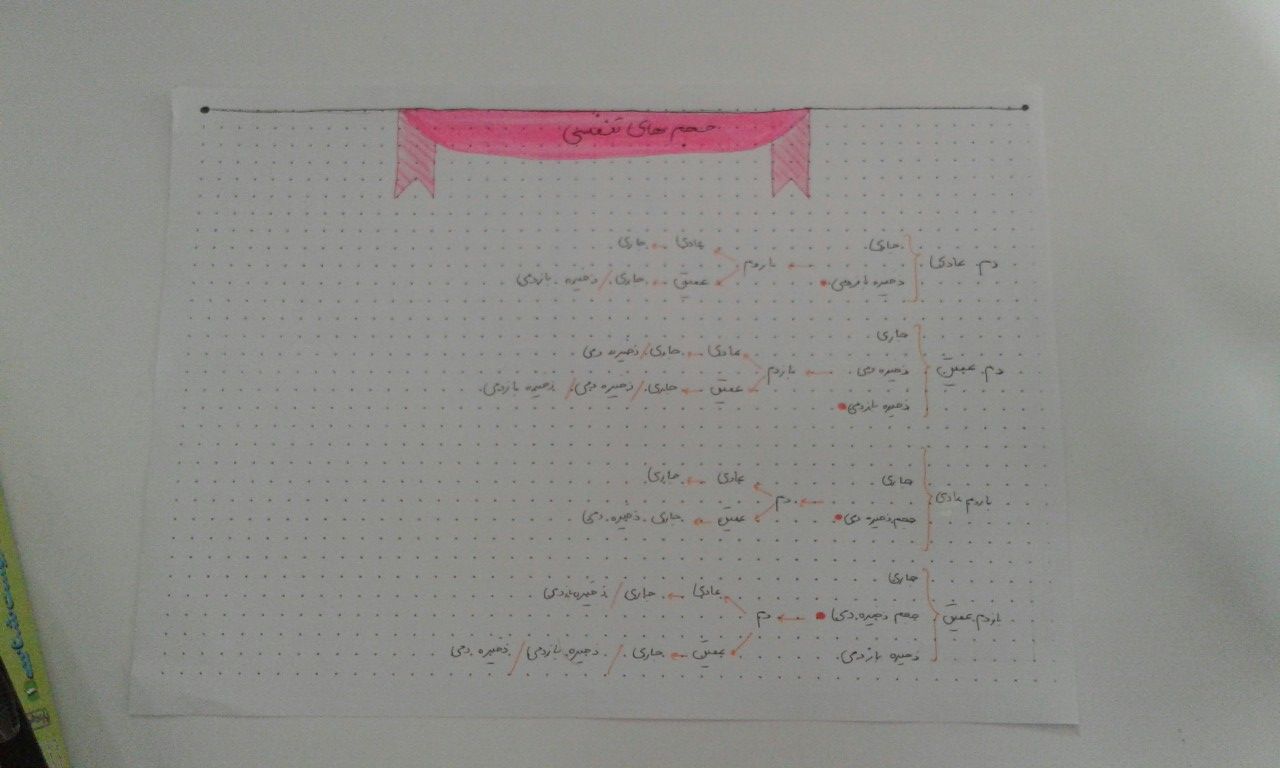 حجم های تنفسی
دم عادی
جاری
ذخیره بازدمی
بازدم
عادی ← جاری
عمیق ← جاری / ذخیره بازدمی
دم عمیق
جاری
ذخیره دمی
ذخیره بازدمی
بازدم
عادی ← جاری / ذخیره دمی
عمیق ← جاری / ذخیره دمی / ذخیره بازدمی
بازدم عادی
جاری
حجم ذخیره دمی
دم
عادی ← جاری
عمیق ← جاری . ذخیره دمی
بازدم عمیق
جاری
حجم ذخیره دمی
ذخیره بازدمی
دم
عادی ← جاری / ذخیره بازدمی
عمیق ← جاری / ذخیره بازدمی / ذخیره دمی